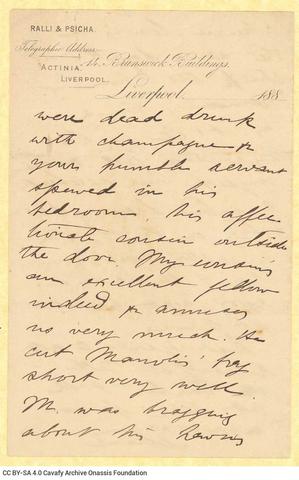 RALLI & PSICHA.
Telegraphic Address
"ACTINIA"
LIVERPOOL.
14 Brunswick Buildings.
Liverpool. 188
were dead drunk
with champagne &
yours humble servant
spewed in his
bedroom his affec
tionate cousin outside
the door. My cousin's
an excellent fellow
indeed & amuses
us very much. He
cut Manolis' 
short very well.
M. was bragging
about his having
CC BY-SA 4.0 Cavafy Archive Onassis Foundation